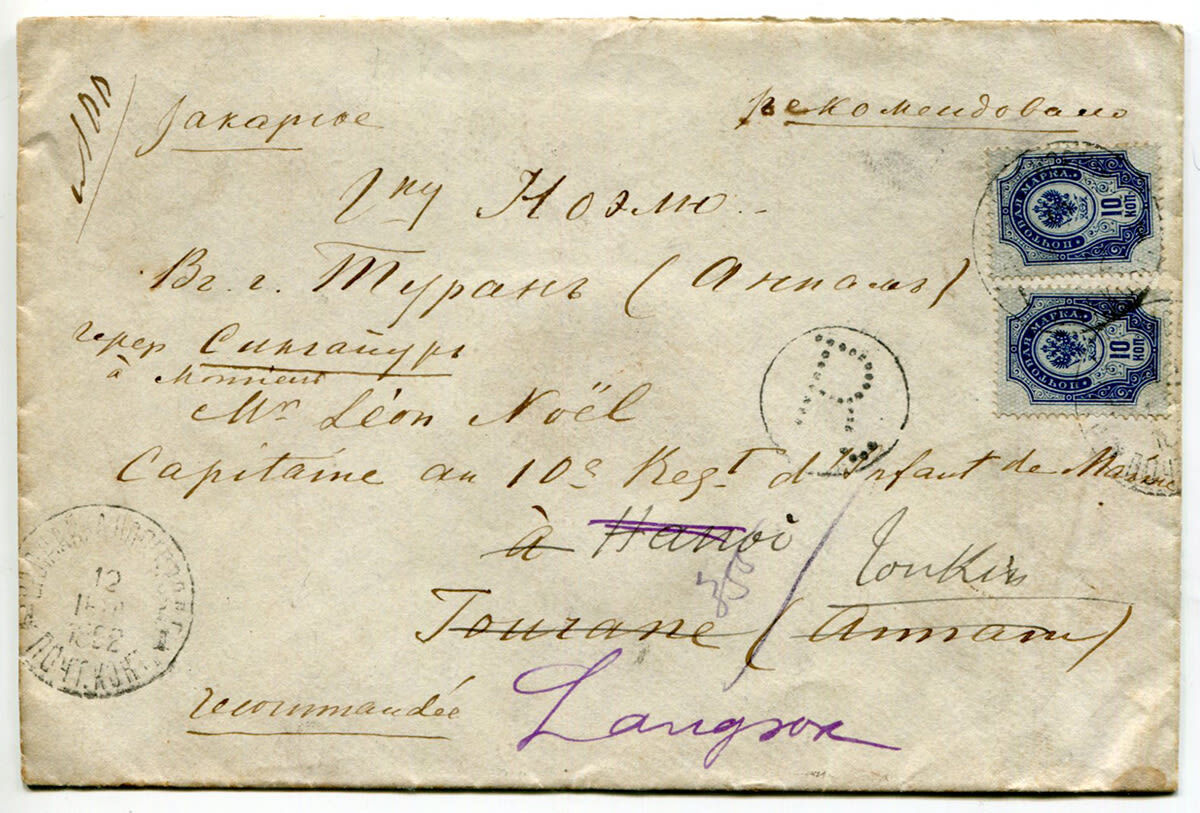 рекомендовано
Гну Ноэлю
Вг. г. Туранъ (Аннамъ)
Сингапуръ
à Monsieur
Mr Léon Noël
Capitaine au 10e Regt d'Infant de Marine
à Hanoï
Tonkin
Tourane (Annam)
recommandée
Langson
R
ПОЧТОВАЯ МАРКА
10 КОП.
ПОЧТОВАЯ МАРКА
10 КОП.
12
1892